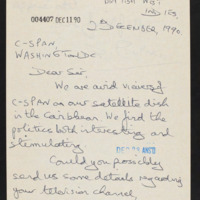 BRITISH WEST
INDIES.
004407 DEC 11 90
2nd DECEMBER, 1990.
C-SPAN,
WASHINGTON DC.
Dear Sir,
We are avid viewers of
C-SPAN on our satellite dish
in the Caribbean. We find the
politics both interesting and
stimulating.
Could you possibly
send us some details regarding
your television channel,